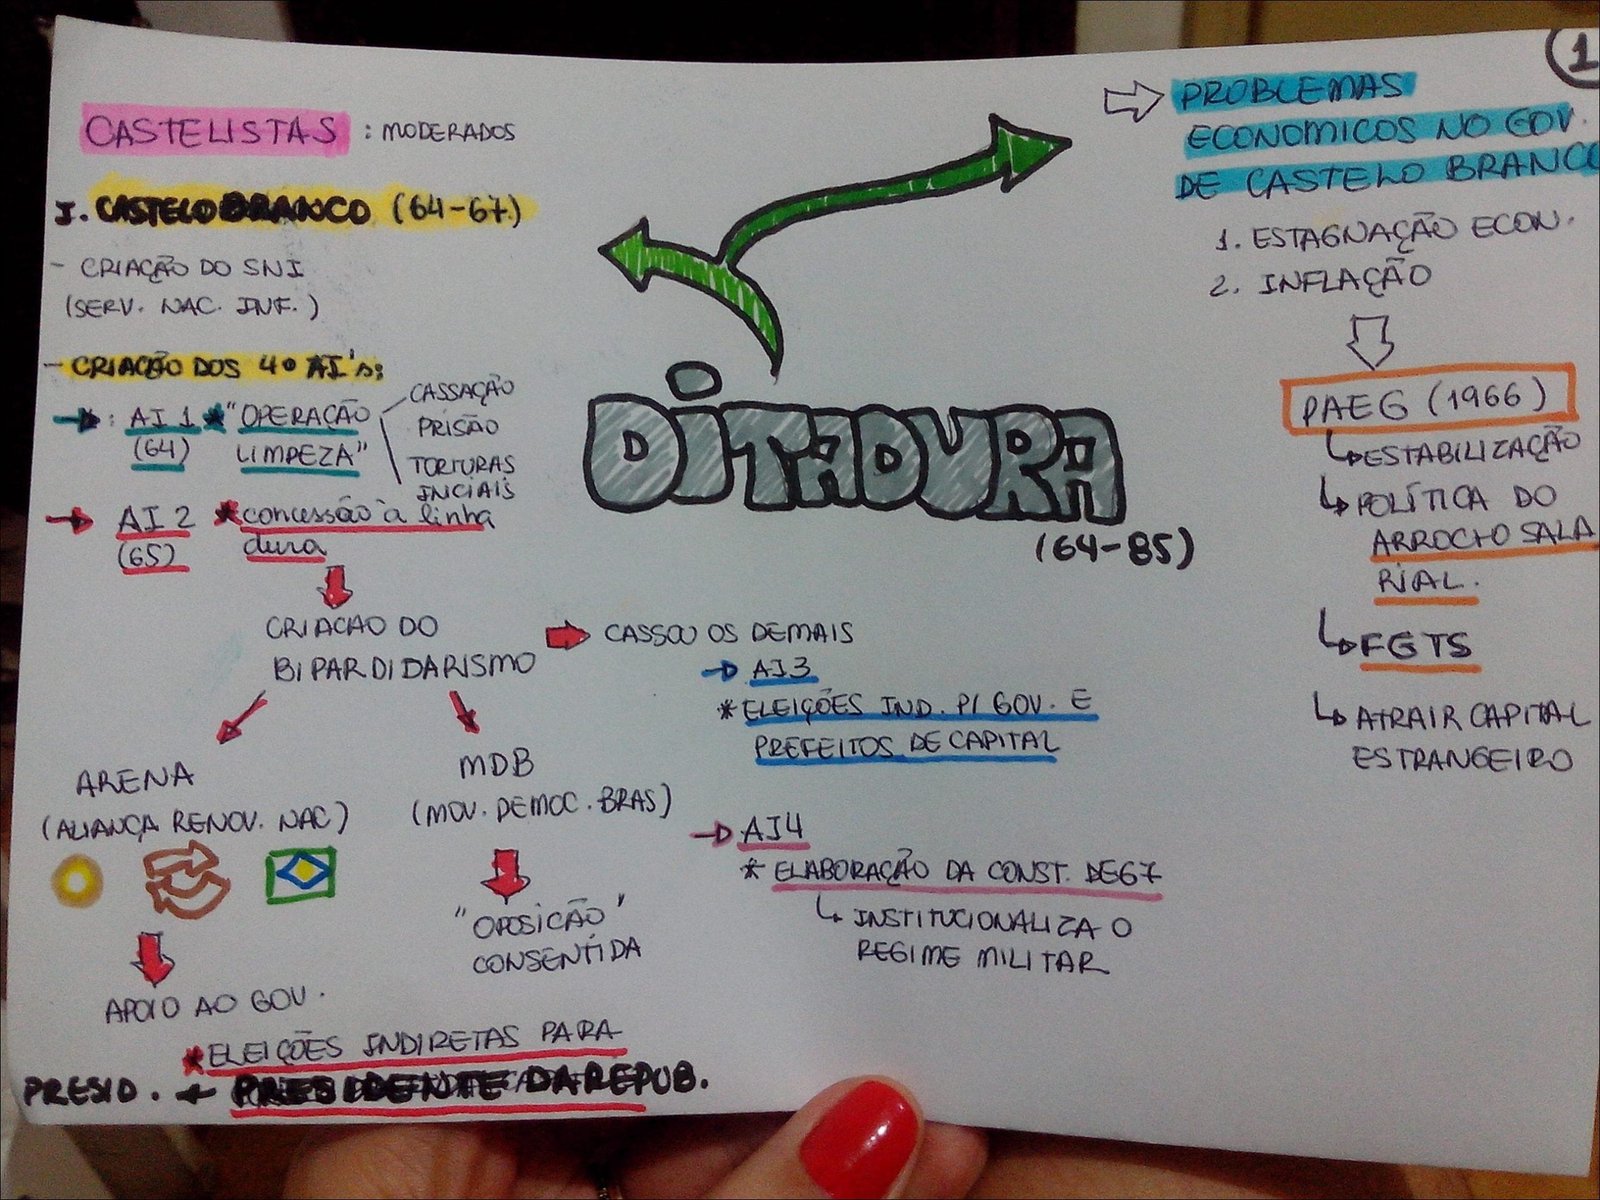 1
CASTELISTAS : MODERADOS
I. CASTELO BRANCO (64-67)
- CRIAÇÃO DO SNI
(SERV. NAC. INF.)
- CRIAÇÃO DOS 4º AI's:
: AI 1 * "OPERAÇÃO
(64) LIMPEZA"
CASSAÇÃO
PRISÃO
TORTURAS
INCIAIS
AI 2 * concessão à linha
(65) dura
CRIACAO DO
BIPARDIDARISMO
CASSOU OS DEMAIS
ARENA
(ALIANÇA RENOV. NAC)
APOIO AO GOV.
MDB
(MOV. DEMOC. BRAS)
"OPOSICÃO"
CONSENTIDA
* ELEIÇÕES INDIRETAS PARA
PRESID. + PRESIDENTE DA REPUB.
DITADURA
(64-85)
AI3
* ELEIÇÕES IND. P/ GOV. E
PREFEITOS DE CAPITAL
AI4
* ELABORAÇÃO DA CONST. DE 67
INSTITUCIONALIZA O
REGIME MILITAR
PROBLEMAS
ECONOMICOS NO GOV.
DE CASTELO BRANCO
1. ESTAGNAÇÃO ECON.
2. INFLAÇÃO
PAEG (1966)
ESTABILIZAÇÃO
POLÍTICA DO
ARROCHO SALA
RIAL.
FGTS
ATRAIR CAPITAL
ESTRANGEIRO